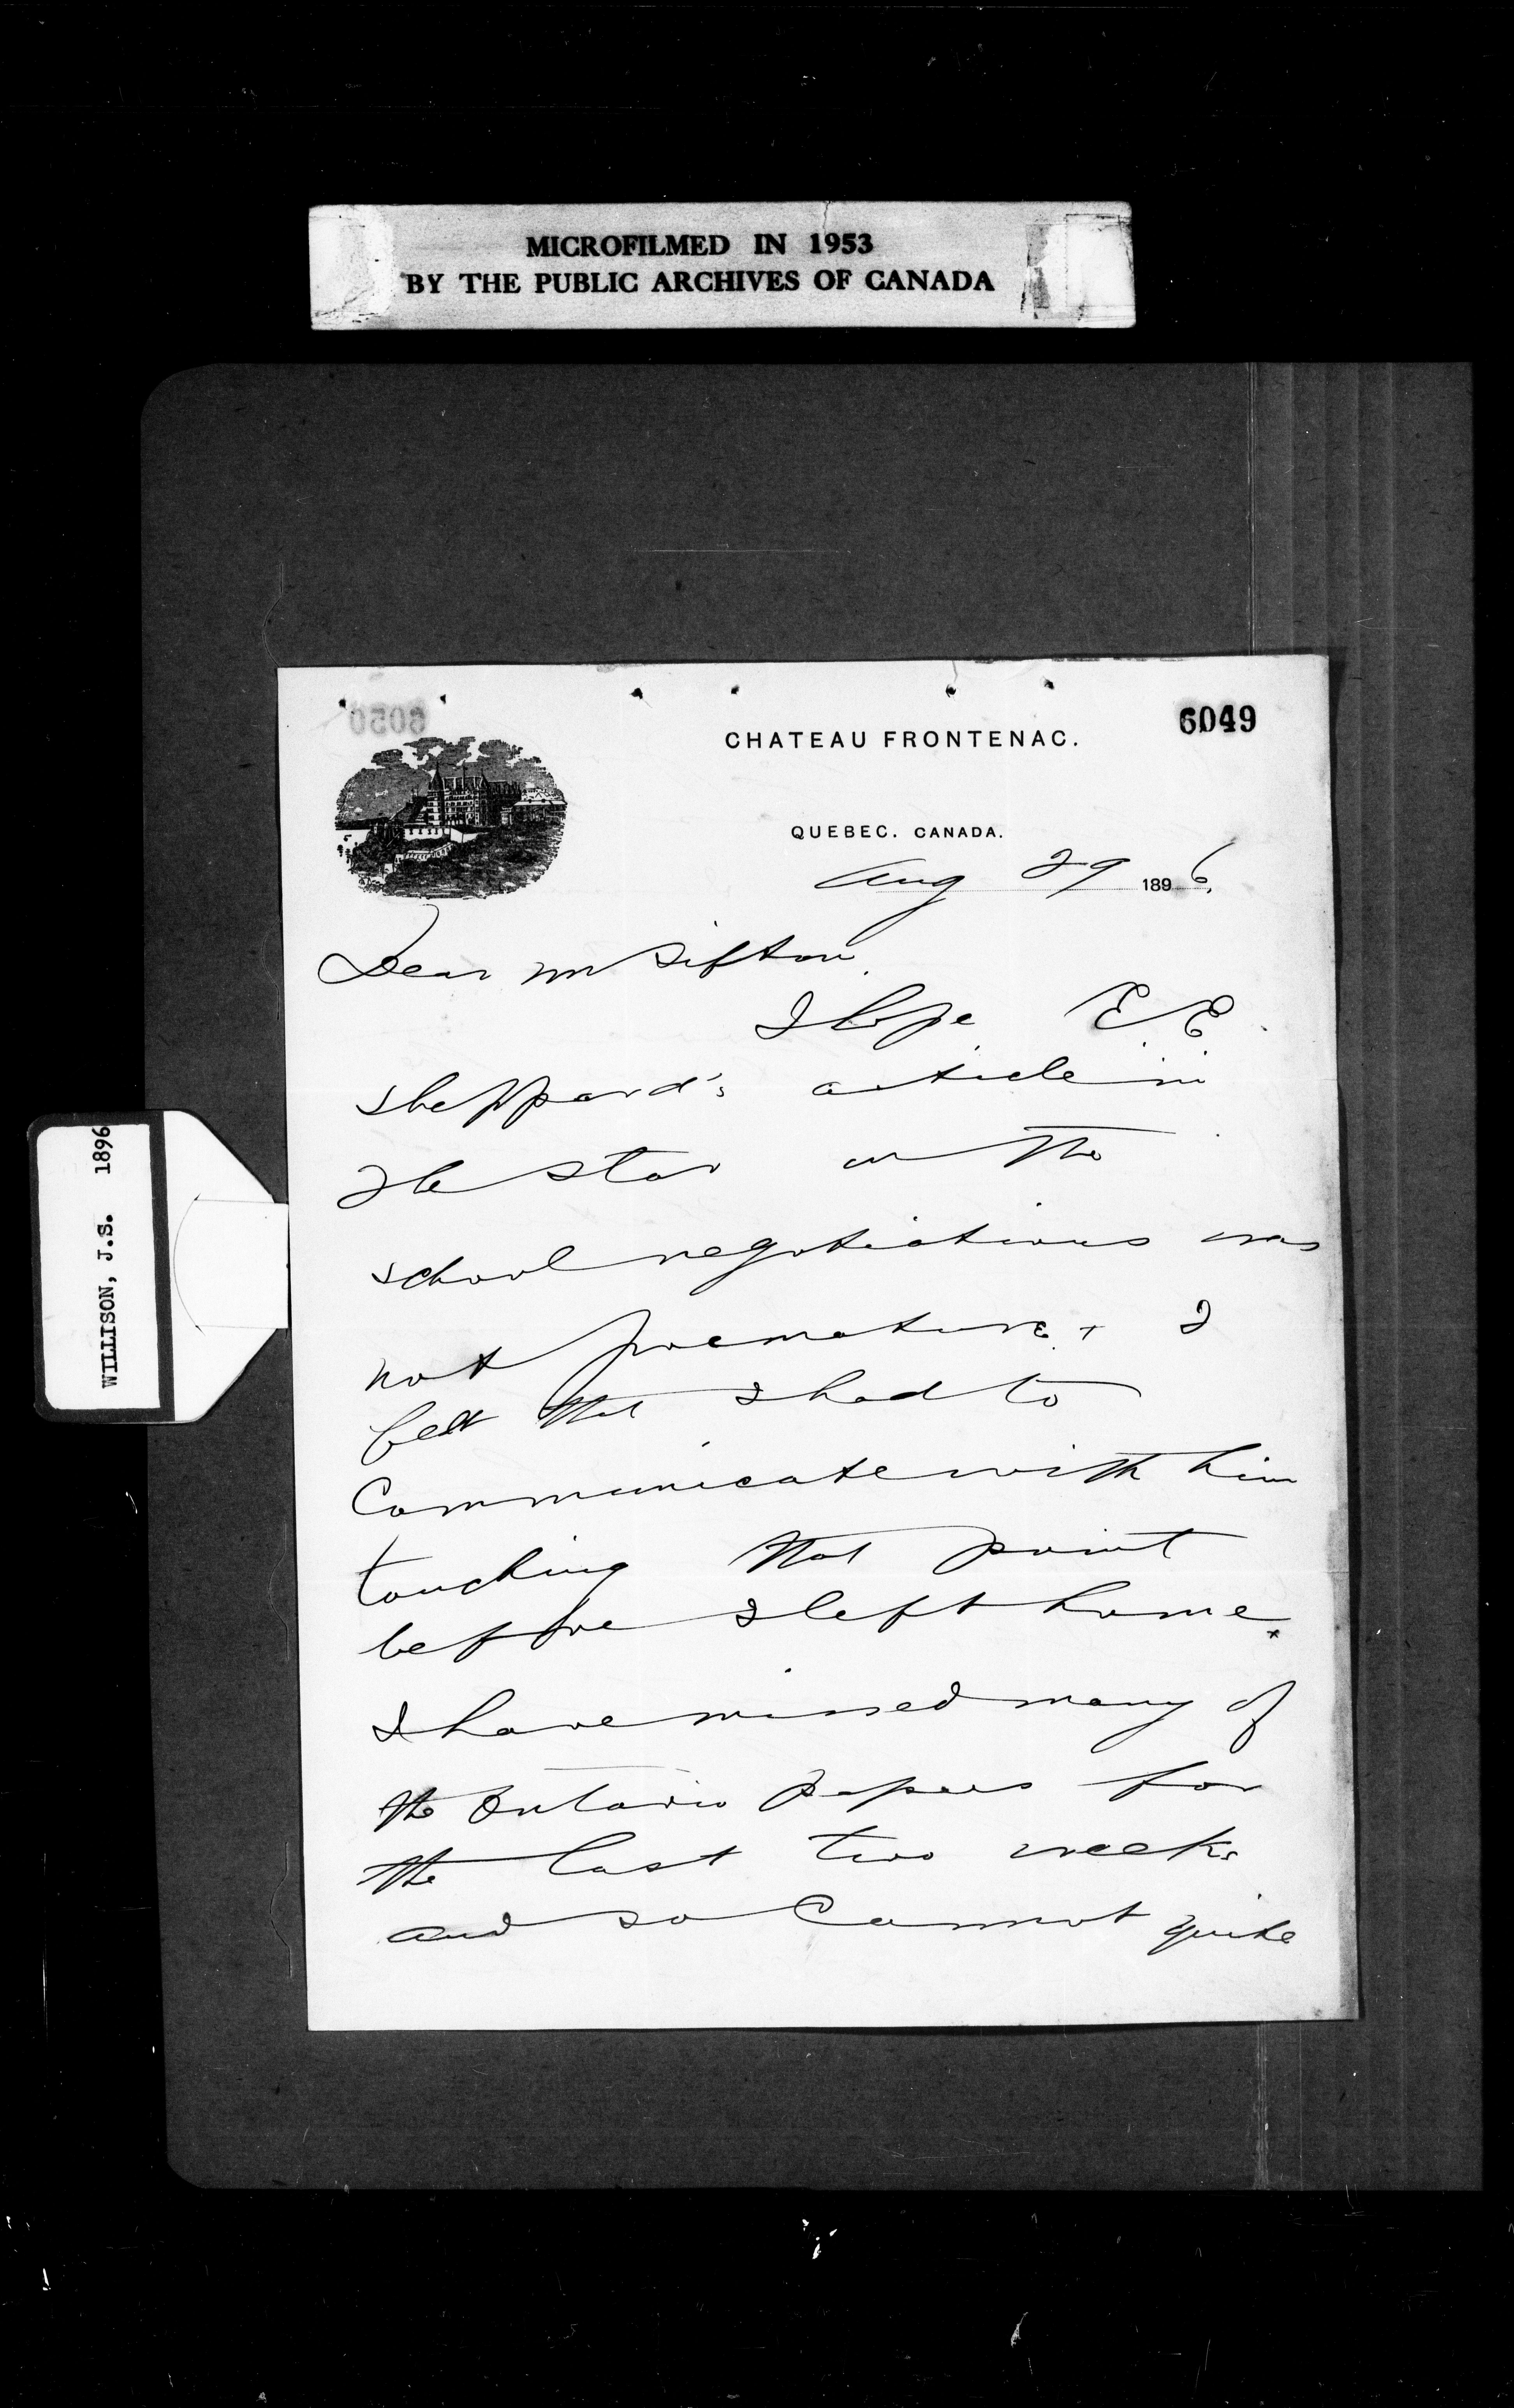 MICROFILMED IN 1953
BY THE PUBLIC ARCHIVES OF CANADA
6050
6049
CHATEAU FRONTENAC.
QUEBEC. CANADA.
Aug 29 1896.
Dear Mr Sifton
I hope E E
Sheppard's article in
The Star on the
school negotiations was
not premature. + I
felt that I had to
Communicate with him
touching that point
before I left home.
I have missed many of
the Ontario papers for
the last two weeks
and so Cannot quite
WILLISON, J.S. 1896